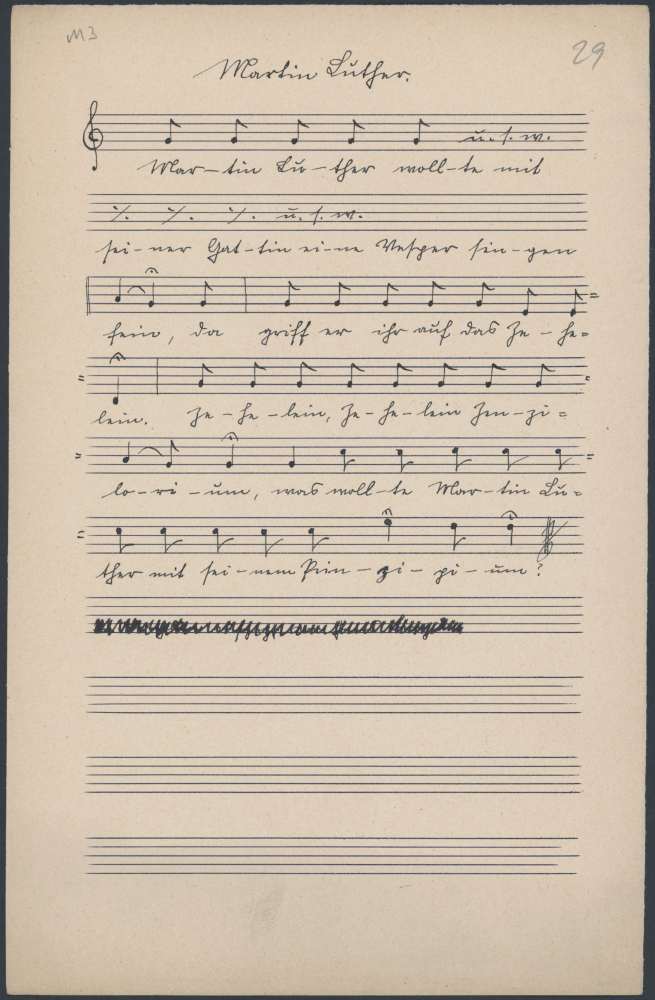 M3
29
Martin Luther.
u. s. w.
Mar-tin Lu-ther woll-te mit
u. s. w.
sei-ner Gat-tin ei-ne Vesper sin-gen
fein, da griff er ihr auf das Ze-he=
lein. Ze-he-lein, Ze-he-lein Zen-zi=
lo-ri-um, was woll-te Mar-tin Lu=
ther mit sei-nem Pin-zi-pi-um?